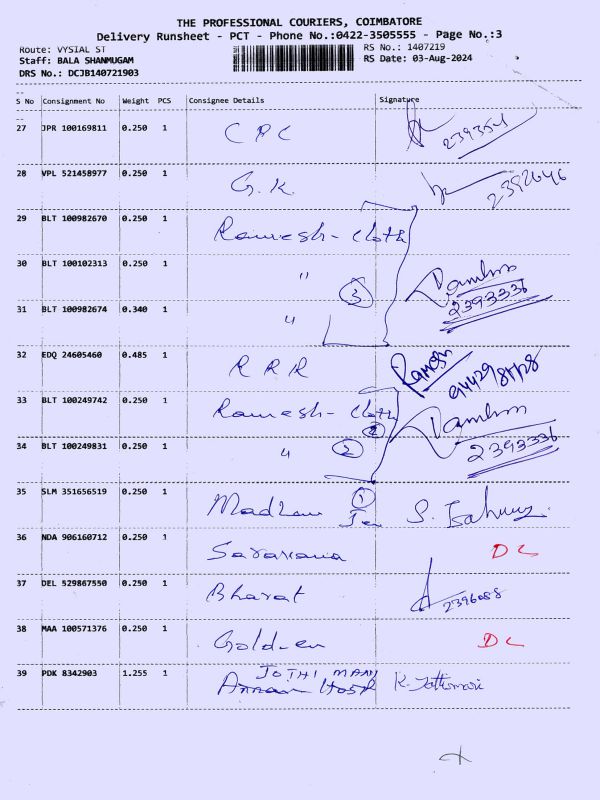 THE PROFESSIONAL COURIERS, COIMBATORE
Delivery Runsheet - PCT - Phone No.:0422-3505555 - Page No.:3
Route: VYSIAL ST RS No.: 1407219
Staff: BALA SHANMUGAM RS Date: 03-Aug-2024
DRS No.: DCJB140721903
--
S No Consignment No Weight PCS Consignee Details Signature
--
27 JPR 100169811 0.250 1 CPC
28 VPL 521458977 0.250 1 G.K. 2392646
29 BLT 100982670 0.250 1 Ramesh-Cloth
30 BLT 100102313 0.250 1 " 3
31 BLT 100982674 0.340 1 " 2393336
32 EDQ 24605460 0.485 1 RRR Ramesh
33 BLT 100249742 0.250 1 Ramesh-Cloth 2
34 BLT 100249831 0.250 1 " 2 2393336
35 SLM 351656519 0.250 1 Madhav 1 S.
36 NDA 906160712 0.250 1 Saravana DL
37 DEL 529867550 0.250 1 Bharat 2396088
38 MAA 100571376 0.250 1 Golden DL
39 PDK 8342903 1.255 1 JOTHI MANI K. Jothimani